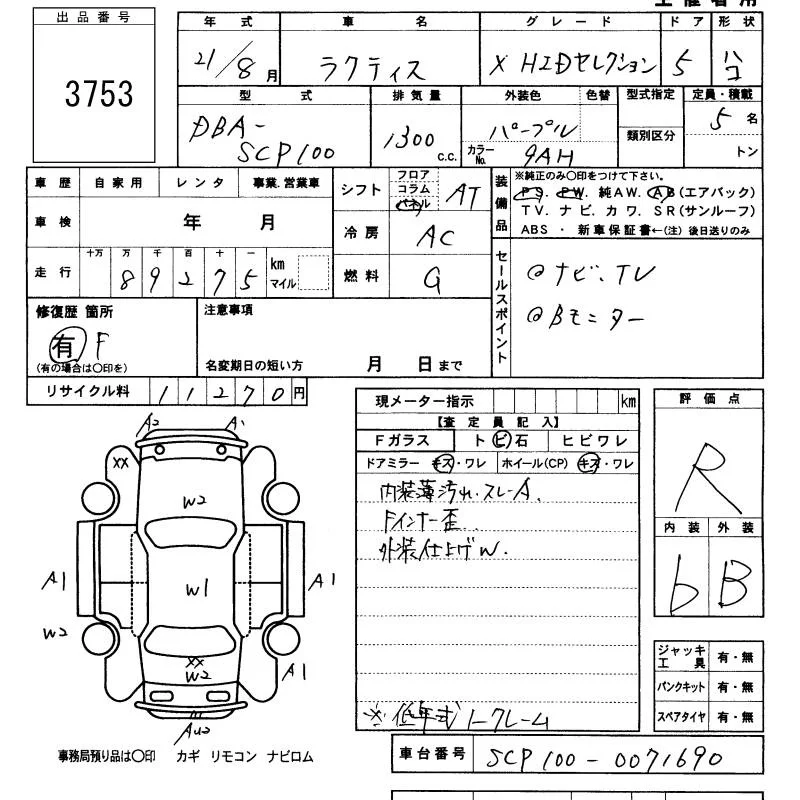 出品番号
3753
年式 車名 グレード ドア 形状
21/8月 ラクティス X HIDセレクション 5 ハコ
型式 排気量 外装色 色替 型式指定 定員・積載
DBA-SCP100 1300c.c. パープル 類別区分 5名
カラーNo. 9AH トン
車歴 自家用 レンタ 事業.営業車
車検 年 月
走行 十万 万 千 百 十 一
89275 km マイル
シフト フロア コラム パネル AT
冷房 AC
燃料 G
装備品
※純正のみ〇印をつけて下さい。
PS. PW. 純AW. AB(エアバック)
TV. ナビ. カワ. SR(サンルーフ)
ABS ・ 新車保証書←(注) 後日送りのみ
セールスポイント
@ナビ、TV
@Bモニター
修復歴 箇所
有 F
(有の場合は〇印を)
注意事項
名変期日の短い方 月 日まで
リサイクル料 11270円
現メーター指示 km
【査定員記入】
Fガラス ト ビ 石 ヒビワレ
ドアミラー キズ・ワレ ホイール(CP) キズ・ワレ
内装薄汚れ.スレA.
Fインナー歪.
外装仕上げW.
※低年式 I-クレーム
評価点
R
内装 外装
b B
ジャッキ工具 有・無
パンクキット 有・無
スペアタイヤ 有・無
A2 A1
XX
W2
A1 W1 A1
W2
XX
W2 A1
事務局預り品は〇印 カギ リモコン ナビロム
車台番号 SCP100-0071690